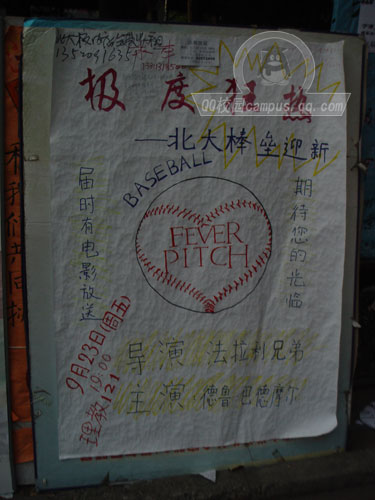 极度狂热
QQ校园 campus.qq.com
——北大棒垒迎新
BASEBALL
FEVER
PITCH
届时有电影放送
期待您的光临
9月23日(周五)
19:00
理教121
导演 法拉利兄弟
主演 德鲁巴德摩尔